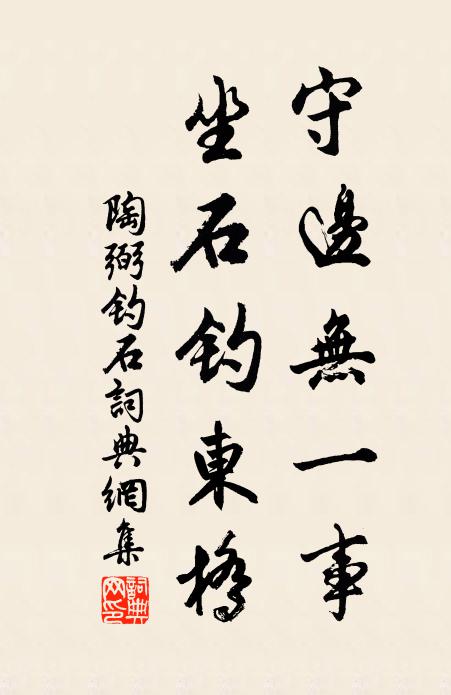 守邊無一事
坐石钓東橋
陶弼钓石詞典網集
詞典网印